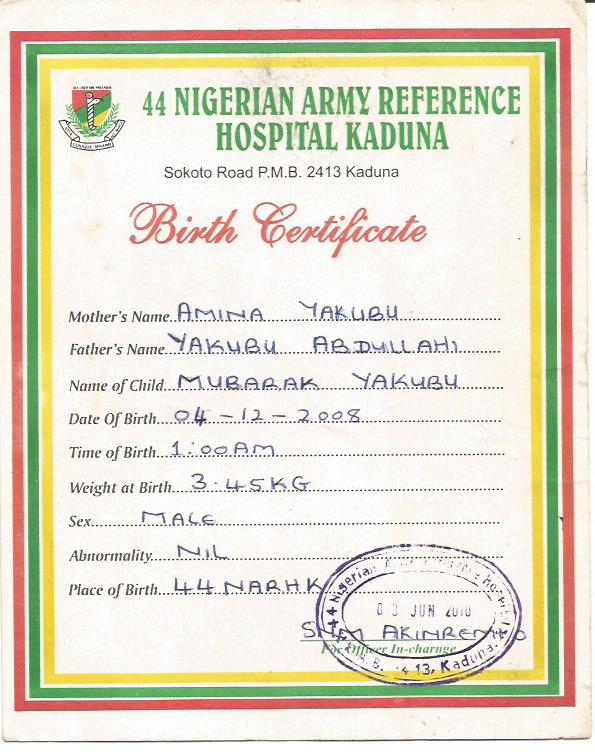 44 NIGERIAN ARMY REFERENCE
HOSPITAL KADUNA
Sokoto Road P.M.B. 2413 Kaduna
Birth Certificate
Mother's Name AMINA YAKUBU
Father's Name YAKUBU ABDULLAHI
Name of Child MUBARAK YAKUBU
Date Of Birth 04-12-2008
Time of Birth 1:00AM
Weight at Birth 3.45KG
Sex MALE
Abnormality NIL
Place of Birth 44 NARHK
44 Nigerian Army Hospital
03 JUN 2010
SNM AKINREMI
For Officer In-charnge
13, Kaduna.